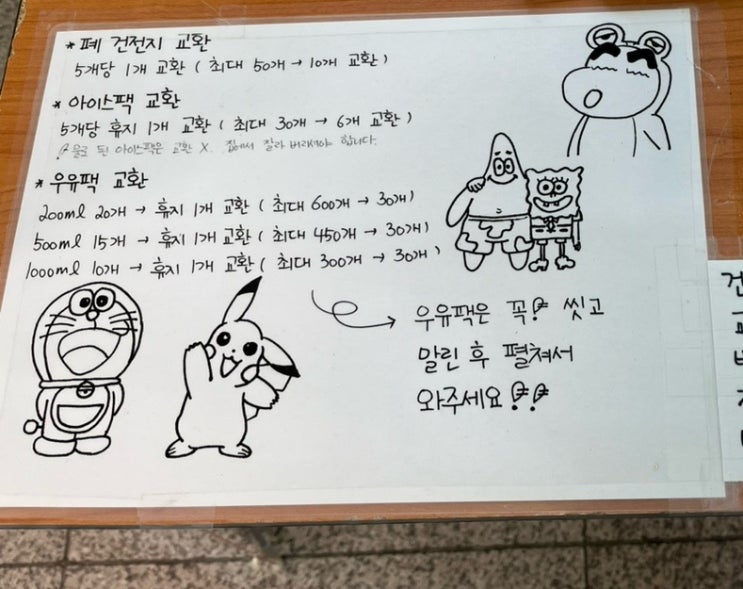 * 폐 건전지 교환
5개당 1개 교환 ( 최대 50개 → 10개 교환 )
* 아이스팩 교환
5개당 휴지 1개 교환 ( 최대 30개 → 6개 교환 )
물로 된 아이스팩은 교환 X. 집에서 잘라 버리셔야 합니다.
* 우유팩 교환
200ml 20개 → 휴지 1개 교환 ( 최대 600개 → 30개 )
500ml 15개 → 휴지 1개 교환 ( 최대 450개 → 30개 )
1000ml 10개 → 휴지 1개 교환 ( 최대 300개 → 30개 )
우유팩은 꼭! 씻고
말린 후 펼쳐서
와주세요!!
건